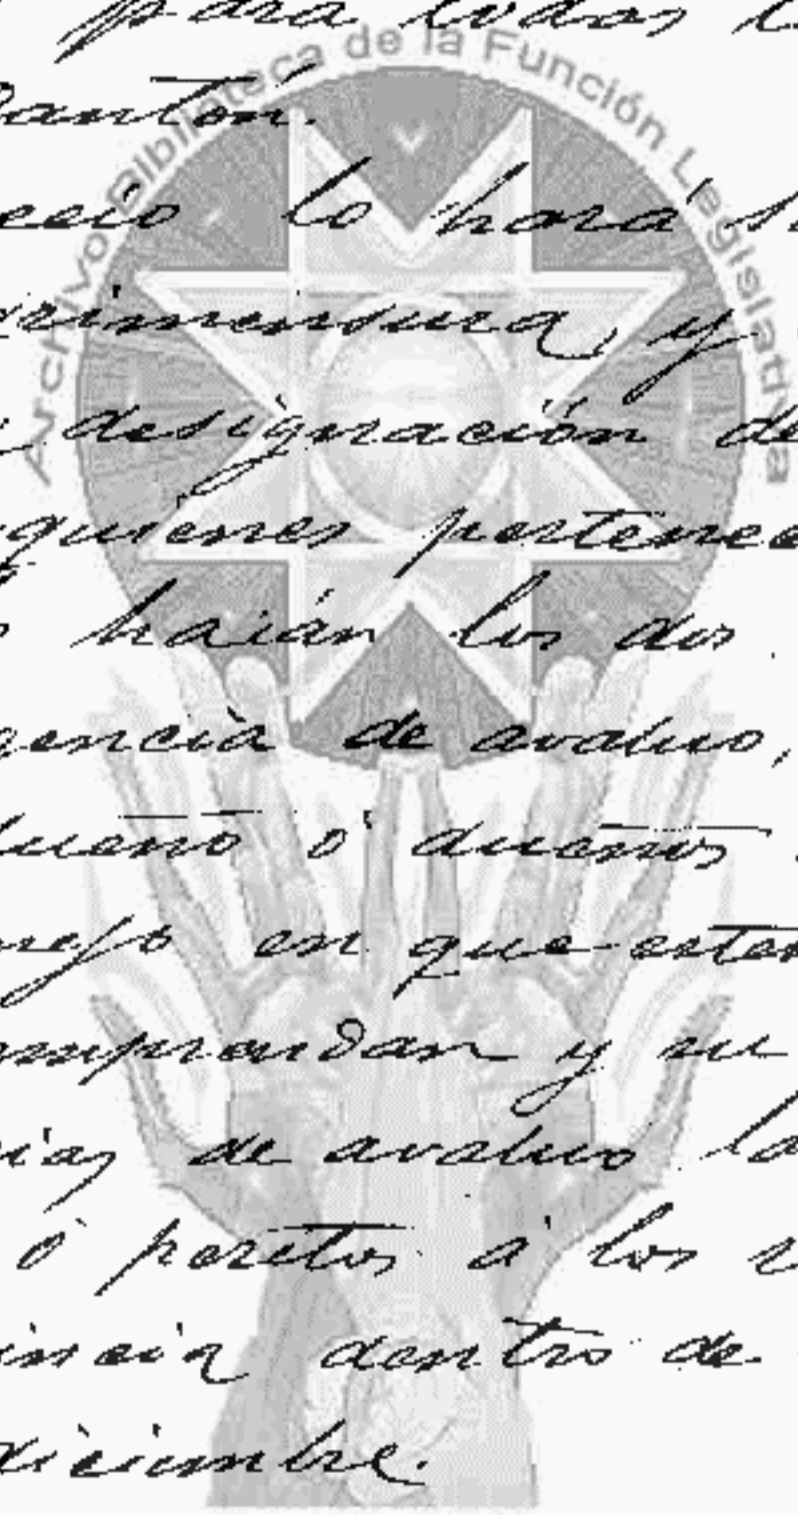 para todos
Archivo Biblioteca de la Función Legislativa
cantón.
lo hará
rimensura, y
designación de
quienes pertenec
harán los dos
gencia de avaluo,
dueño ó dueños
en que esten
omprendan y su
ias de avaluo la
ó peritos á los
incia dentro de
diciembre.